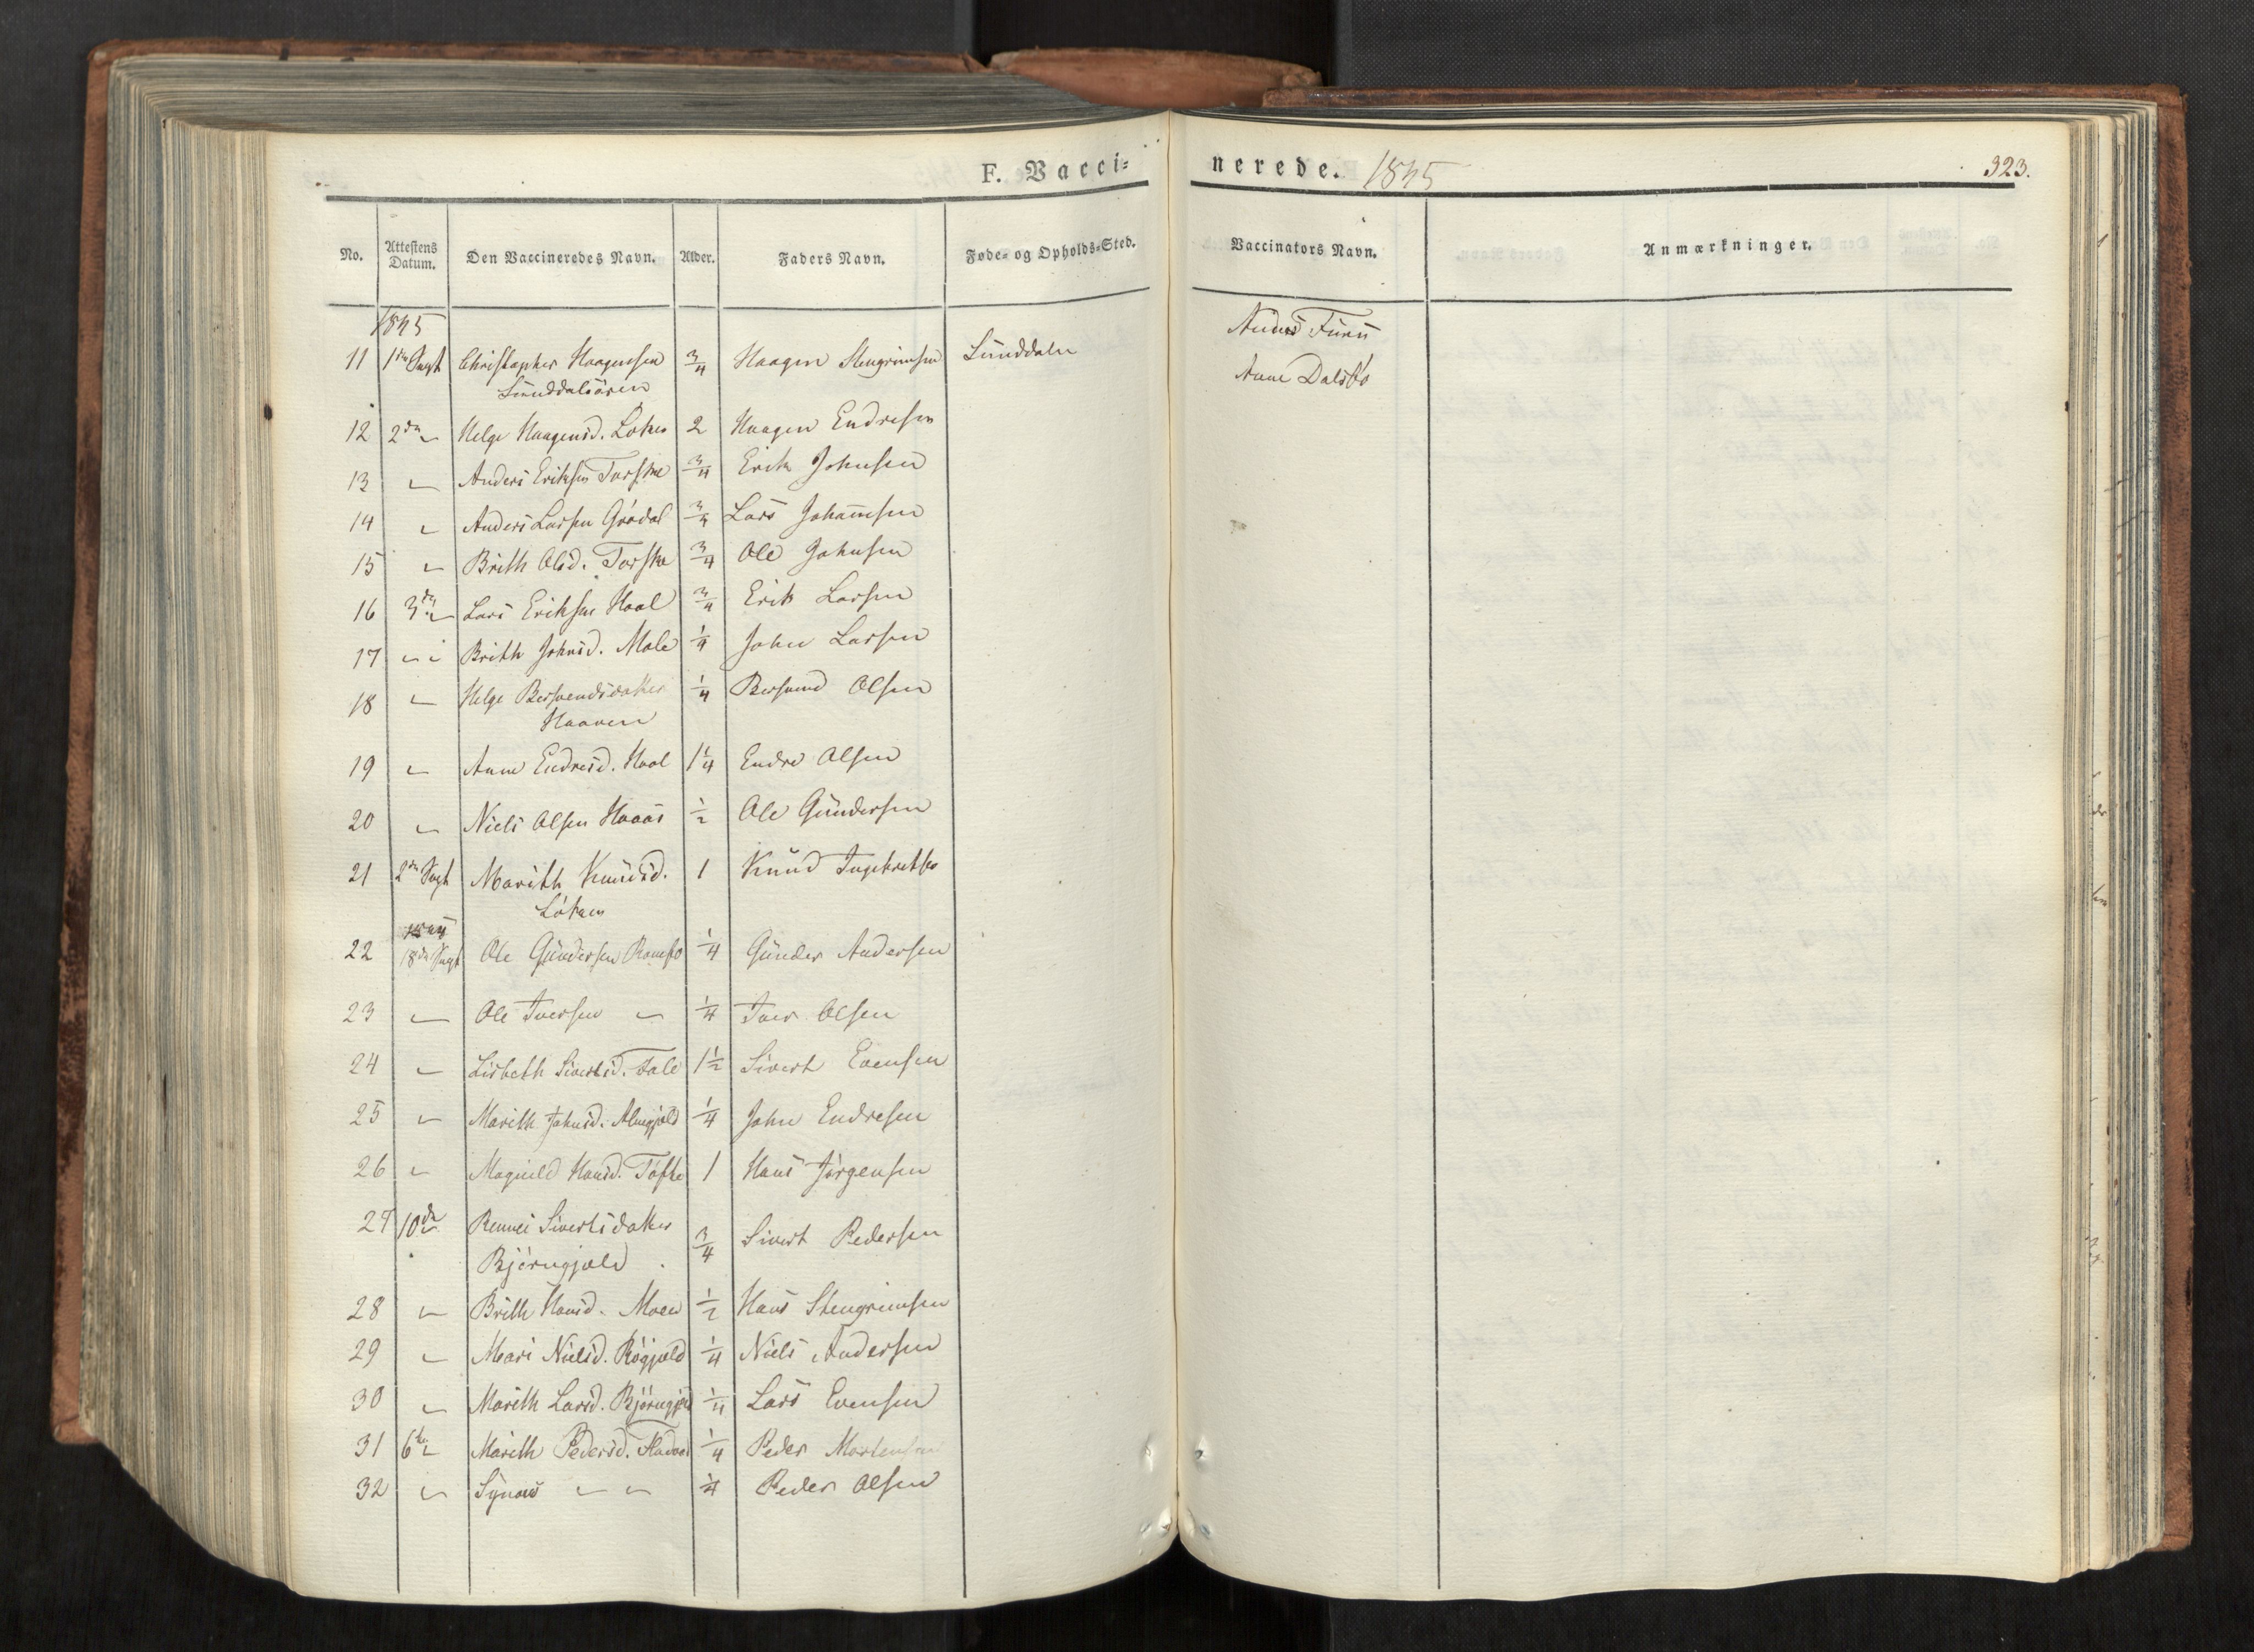 F. Vacci=
nerede. 1845
323.
No. Attestens Datum. Den Vaccineredes Navn. Alder. Faders Navn. Føde- og Opholds-Sted. Vaccinators Navn. Anmærkninger.
1845
Anders Furu
11 1ste Sept Christopher Haagensen 3/4 Haagen Stengrimsen Sunddalen
Sunddalsören
Anne Dalsbö
12 2den " Helge Haagensd. Löken 2 Haagen Endresen
13 " Anders Eriksen Torske 3/4 Erik Johnsen
14 " Anders Larsen Grödal 3/4 Lars Johannsen
15 " Brith Olsd. Torske 3/4 Ole Johnsen
16 3die " Lars Eriksen Hoel 3/4 Erik Larsen
17 " " Brith Johnsd. Mæle 1/4 John Larsen
18 " Helge Bersvendsdatter 1/4 Bersvend Olsen
Haaven
19 " Anne Endresd. Hoel 1 1/4 Endre Olsen
20 " Niels Olsen Haaas 1/2 Ole Gundersen
21 2den Sept Marith Knudsd. 1 Knud Ingebretsen
Löken
22 18de Sept Ole Gundersen 1/4 Gunder Andersen
23 " Ole Iversen " 1/4 Iver Olsen
24 " Lisbeth Sivertsd. Fale 1 1/2 Sivert Evensen
25 " Marith Johnsd. 1/4 John Endresen
26 " Magnild Hansd. Töfte 1 Hans Jörgensen
27 10de " Rennei Sivertsdatter 3/4 Sivert Pedersen
Björngjæld
28 " Brith Hansd. Moen 1/2 Hans Stengrimsen
29 " Mari Nielsd. Rögjæld 1/4 Niels Andersen
30 " Marith Larsd. Björngjæld 1/4 Lars Evensen
31 6te " Marith Pedersd. 1/4 Peder Mortensen
32 " " " 1/4 Peder Olsen